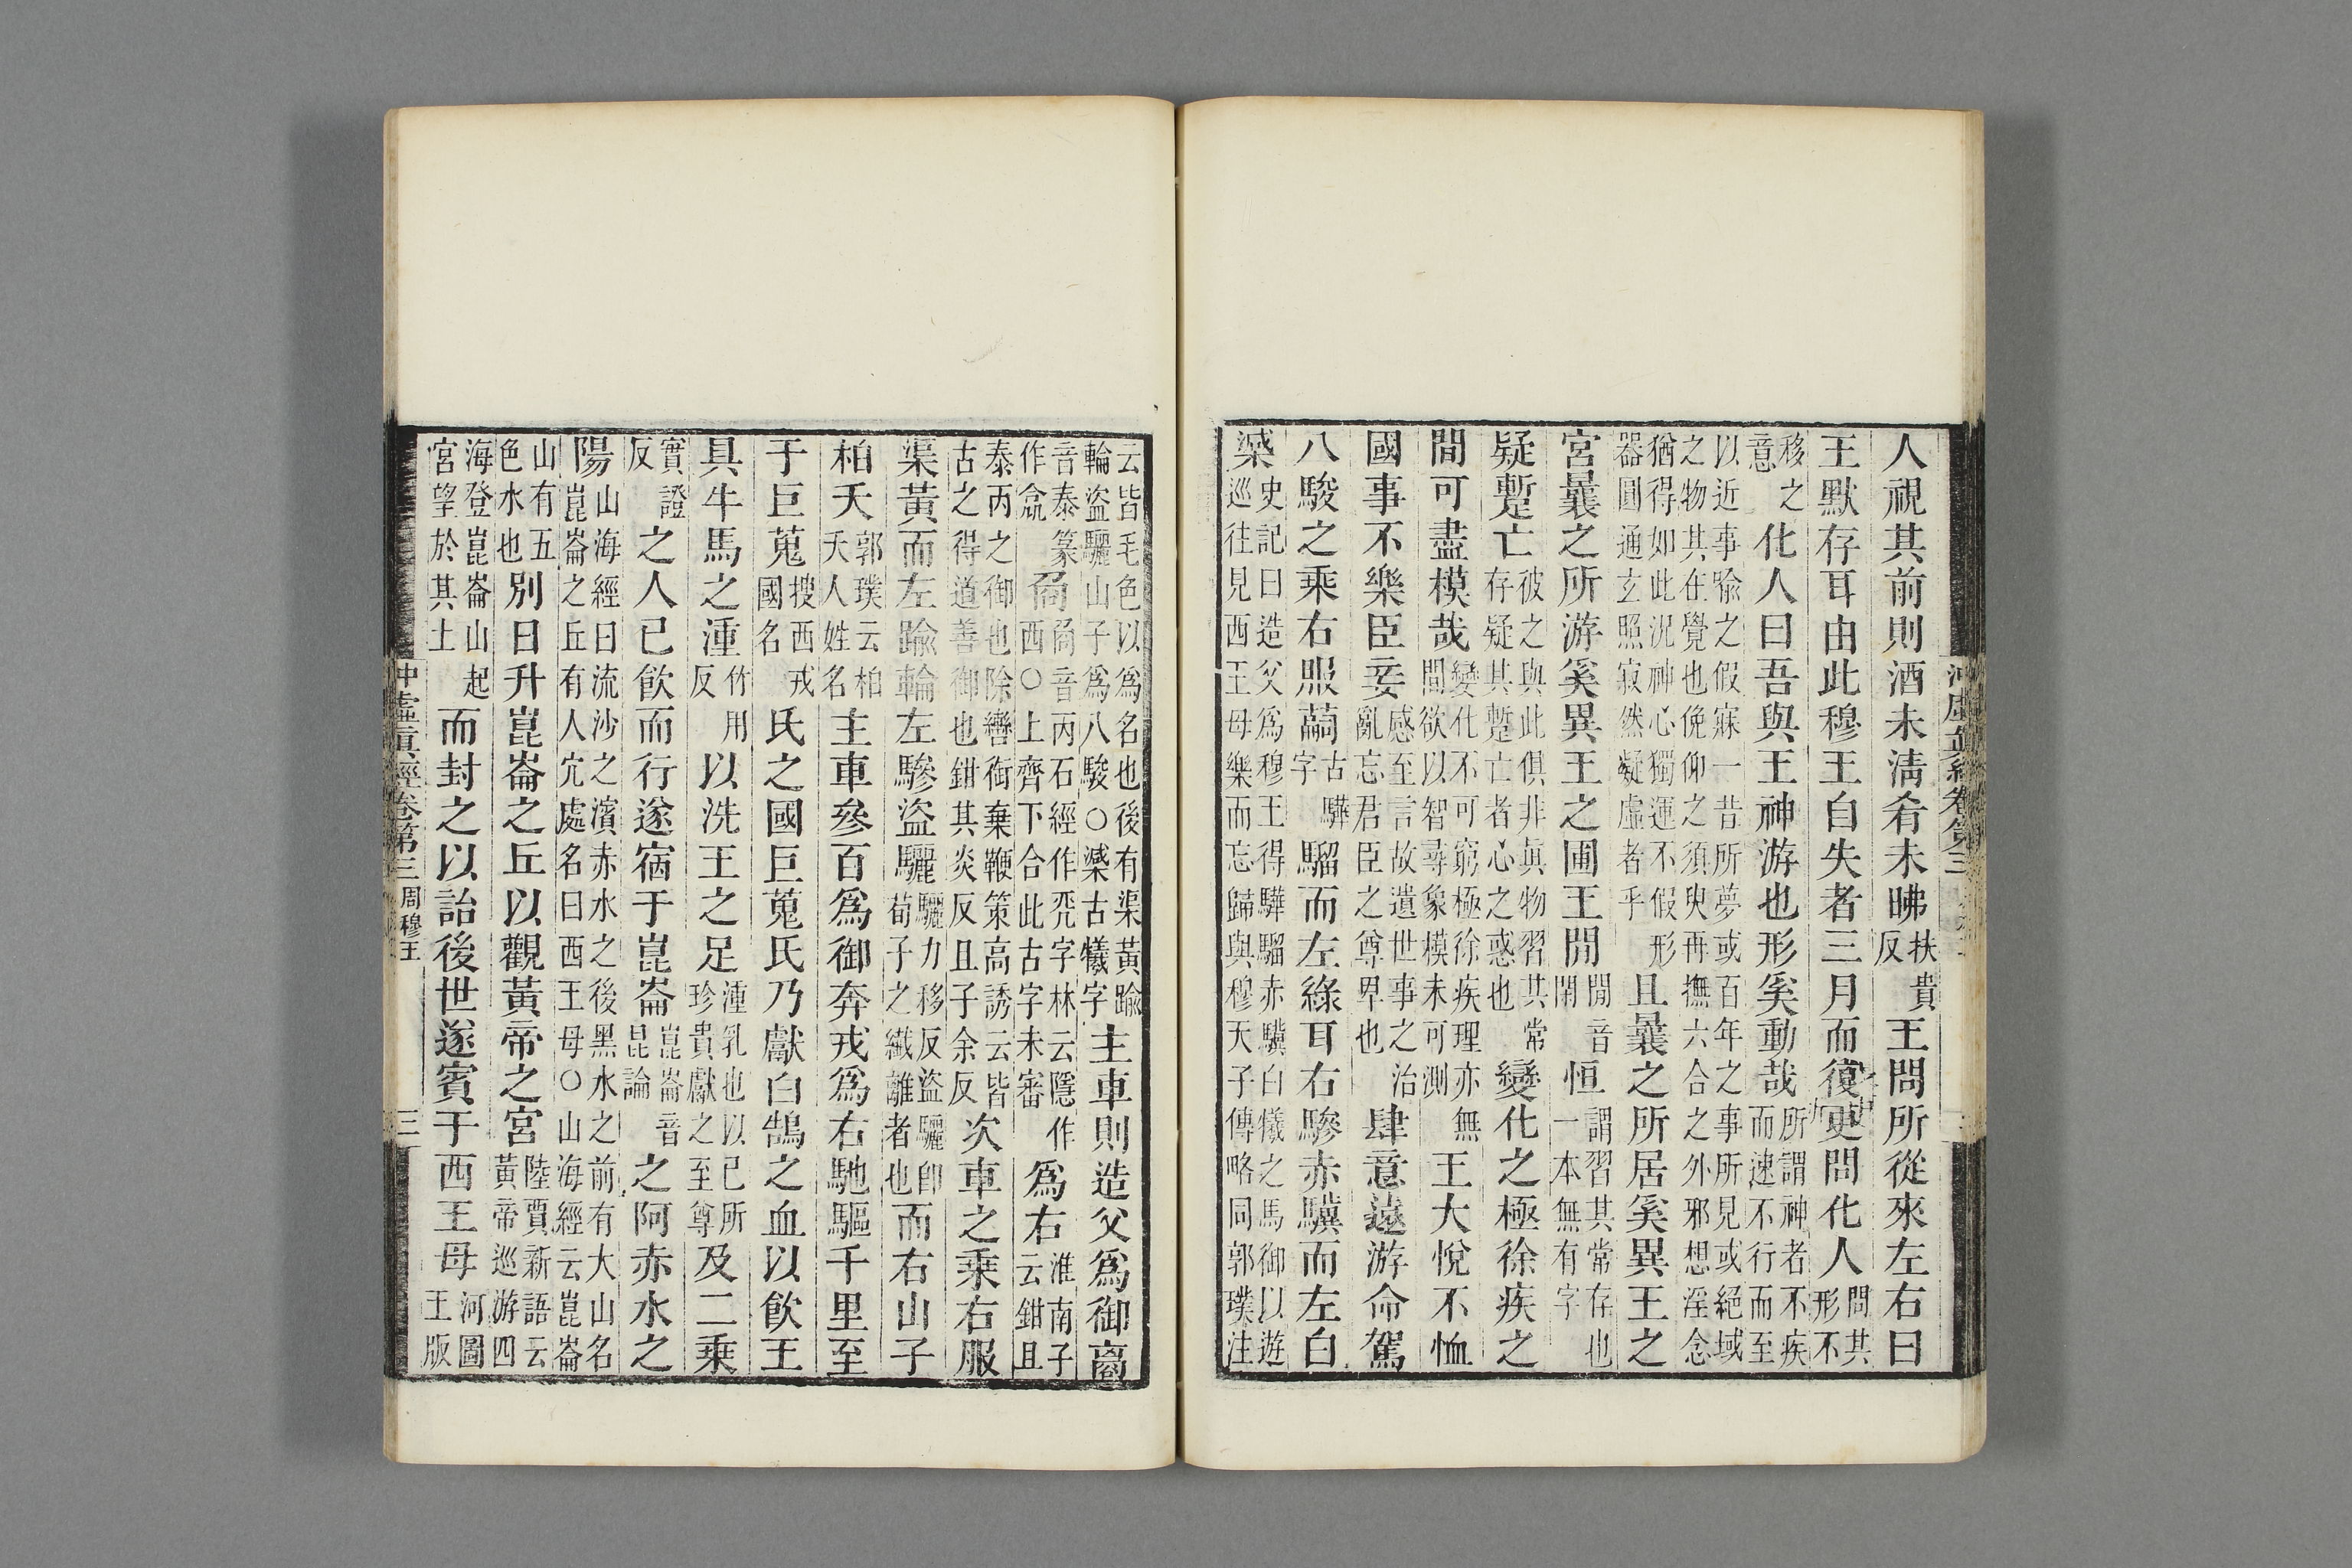 人視其前則酒未淸肴未昲扶貴反王問所從來左右曰
王默存耳由此穆王自失者三月而復更問化人問其形不
移之意化人曰吾與王神游也形奚動哉所謂神者不疾而速不行而至
以近事喻之假寐一昔所夢或百年之事所見或絕域之物其在覺也俛仰之須臾再撫六合之外邪想淫念
猶得如此況神心獨運不假形器圓通玄照寂然凝虛者乎且曩之所居奚異王之
宮曩之所游奚異王之圃王閒閒音閑恒謂習其常存也一本無有字
疑蹔亡彼之與此俱非眞物習其常存疑其蹔亡者心之惑也變化之極徐疾之
間可盡模哉變化不可窮極徐疾理亦無間欲以智尋象模未可測王大悅不恤
國事不樂臣妾感至言故遺世事之治亂忘君臣之尊卑也肆意遠游命駕
八駿之乘右服古驊字騮而左綠耳右驂赤驥而左白
史記曰造父爲穆王得驊騮赤驥白犧之馬御以遊巡往見西王母樂而忘歸與穆天子傳略同郭璞注
云皆毛色以爲名也後有渠黃踰輪盜驪山子爲八駿○古犧字主車則造父爲御
音泰篆作㒷音丙石經作兖字林云隱作西○上齊下合此古字未審爲右淮南子云鉗且
泰丙之御也除轡銜棄鞭策高誘云皆古之得道善御也鉗其炎反且子余反次車之乘右服
渠黃而左踰輪左驂盜驪驪力移反盜驪卽荀子之纖離者也而右山子
柏夭郭璞云柏夭人姓名主車參百爲御奔戎爲右馳驅千里至
于巨蒐搜西戎國名氏之國巨蒐氏乃獻白鵠之血以飮王
具牛馬之湩竹用反以洗王之足湩乳也以已所珍貴獻之至尊及二乘
實證反之人已飮而行遂宿于崑崙崑崙音昆論之阿赤水之
陽山海經曰流沙之濱赤水之後黑水之前有大山名崑崙之丘有人穴處名曰西王母○山海經云崑崙
山有五色水也別日升崑崙之丘以觀黃帝之宮陸賈新語云黃帝巡游四
海登崑崙山起宮望於其上而封之以詒後世遂賓于西王母河圖玉版
冲虛眞經卷第三 周穆王 三